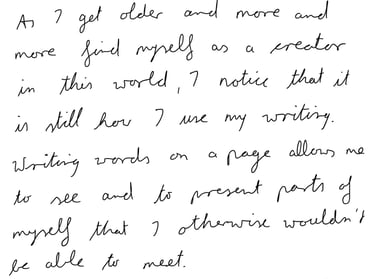 As I get older and more and
more find myself as a creator
in this world, I notice that it
is still how I use my writing.
Writing words on a page allows me
to see and to present parts of
myself that I otherwise wouldn't
be able to meet.